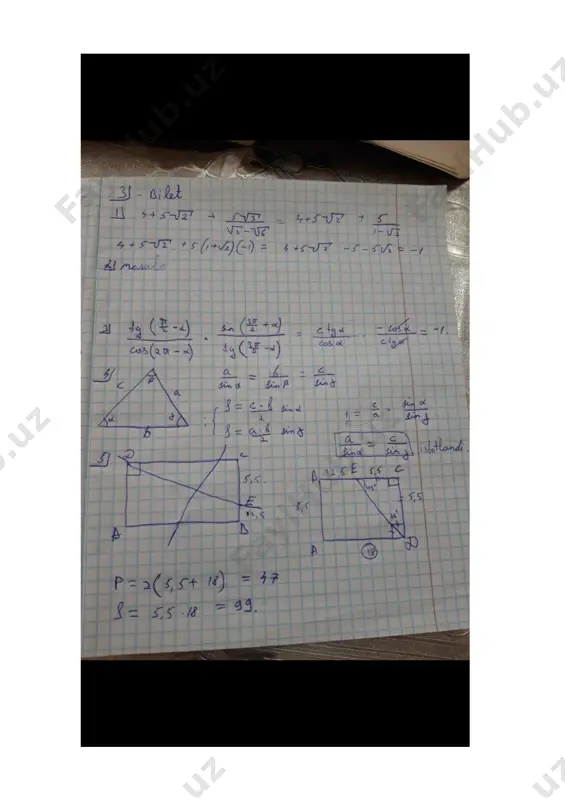 31 - Bilet
1) 4+5√2 + 5√3/(√3-√6) = 4+5√2 + 5/(1-√2)
4+5√2 +5(1+√2)(-1) = 4+5√2 -5-5√2 = -1
2) tg(π/2-α)/cos(2π-α) · sin(3π/2+α)/tg(3π/2-α) = ctgα/cosα · -cosα/ctgα = -1
4) a/sinα = b/sinβ = c/sinγ
c a β α γ b
S = c·b/2 sinα
S = a·b/2 sinγ
1 = c/a · sinα/sinγ
a/sinα = c/sinγ isbotlandi.
5) D C 5,5 E 12,5 A B
B 12,5 E 5,5 C 45° 5,5 5,5 45° A 18 D
P = 2(5,5+18) = 47
S = 5,5·18 = 99.